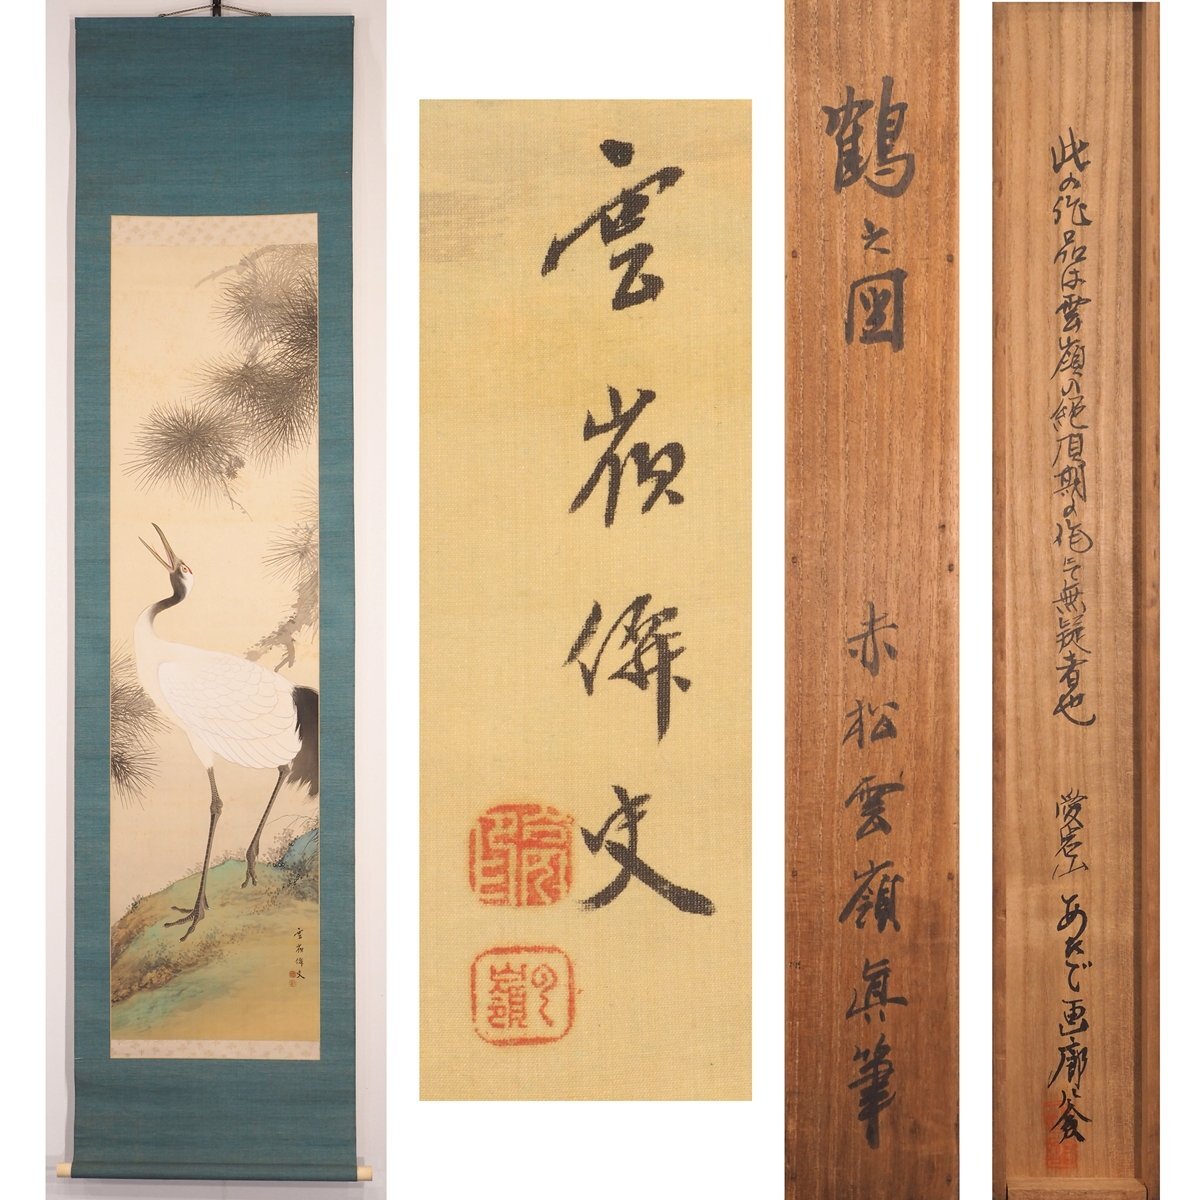 雲嶺僊史
雲嶺僊史
雲嶺
鶴之図
赤松雲嶺眞筆
此の作品は雲嶺の絶頂期の作にて無疑者也
愛宕山 あたご画廊